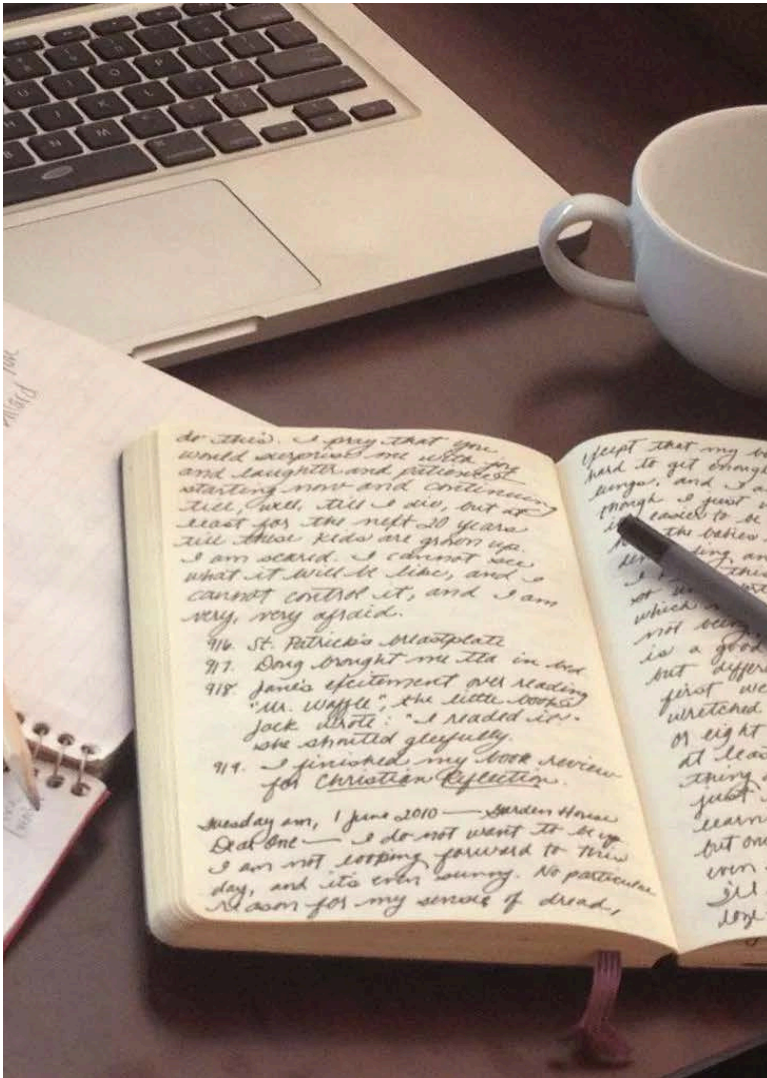 do this. I pray that you
would surprise me with joy
and laughter and patience
starting now and continuing
till, well, till I die, but at
least for the next 20 years
till these kids are grown up.
I am scared. I cannot see
what it will be like, and I
cannot control it, and I am
very, very afraid.
916. St. Patrick's breastplate
917. Doug brought me tea in bed
918. Jane's excitement over reading
"Mr. Waffle", the little book
Jack wrote: "I readed it"
she shouted gleefully.
919. I finished my book review
for Christian Reflection.
Tuesday am, 1 June 2010 — Garden House
Dear One — I do not want to be up
I am not looping forward to this
day, and it's even sunny. No particular
reason for my sense of dread,
except that my
hard to get enough
lungs, and I
though I just
easier to be
the babies
and
this
which
not being
is a good
but
first
wretched
or eight
at least
thing
just
learn
but one
even
I'll
U I O P
H J K L
B N M